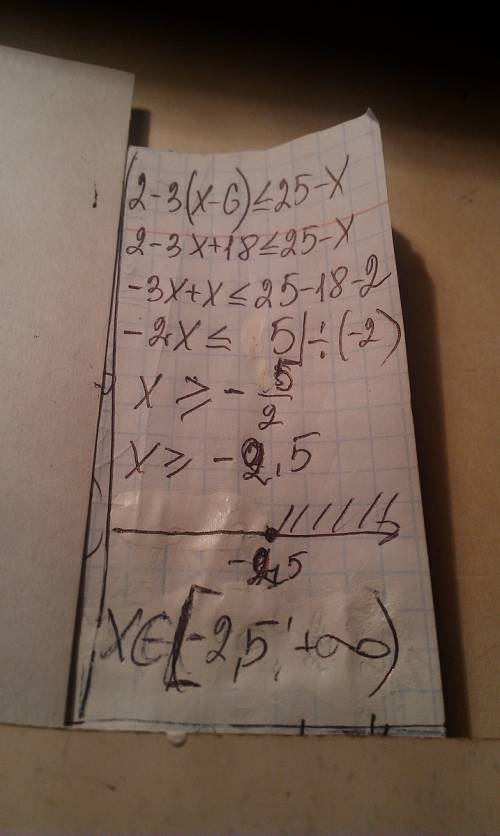 2-3(x-6)≤25-x
2-3x+18≤25-x
-3x+x≤25-18-2
-2x≤ 5|÷(-2)
x⩾-5/2
x⩾-2,5
-2,5
x∈[-2,5; +∞)